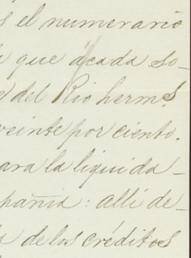 s el numerario
que á cada so-
del Rio herms
veinte por ciento.
para la liquida-
pañia: alli de-
de los créditos